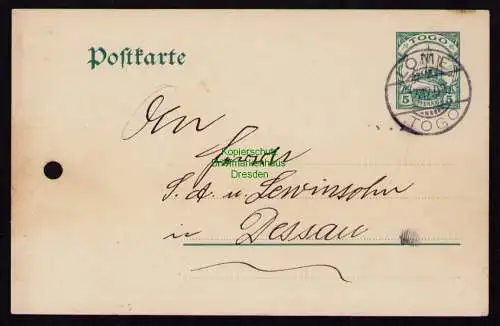 TOGO
Postkarte
LOME
TOGO
5 5
An
Kopierschutz
Briefmarkenhaus
Dresden
S. A. u. Lewinsohn
in Dessau